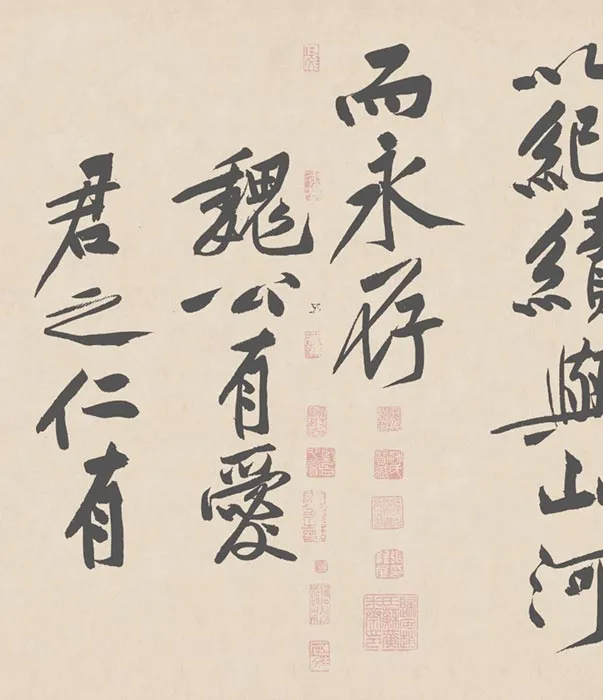 以紀績與山河
而永存
魏公有愛
君之仁有